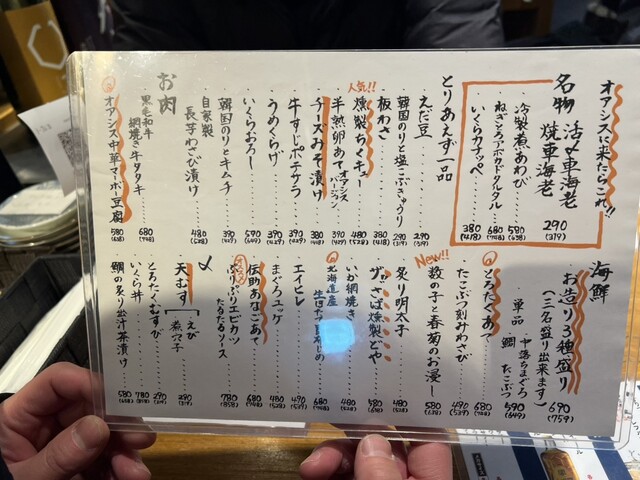 オアシスに来たらこれ!!
名物 活〆車海老
焼車海老 290 (319)
冷製煮あわび 580 (638)
ねぎとろアボカドタルタル 680 (748)
いくらカナッペ 380 (418)
とりあえず一品
えだ豆 290 (319)
韓国のりと塩こぶきゅうり 290 (319)
板わさ 380 (418)
人気!!
燻製ちくキュー 480 (528)
半熟卵あて オアシスバージョン 390 (429)
チーズみそ漬け 380 (418)
牛すじポテサラ 390 (429)
うめくらげ 390 (429)
いくらおろし 590 (649)
韓国のりとキムチ 390 (429)
自家製
長芋わさび漬け 480 (528)
お肉
黒毛和牛
網焼き牛タタキ 680 (748)
オアシス中華マーボー豆腐 580 (638)
海鮮
お造り3種盛り 690 (759)
(三名盛り出来ます)
単品 中落ちまぐろ
鯛 たこぶつ 590 (649)
とろたくあて 680 (748)
たこぶつ刻みわさび 490 (539)
New!!
数の子と春菊のお浸し 580 (638)
炙り明太子 480 (528)
さば燻製どや 580 (638)
いか網焼き 480 (528)
北海道産
680 (748)
エイヒレ 490 (539)
まぐろユッケ 480 (528)
伝助あなごあて 680 (748)
ぷりぷりエビカツ
たるたるソース 780 (858)
〆
天むす えび
煮穴子 290 (319)
とろたくむすび 290 (319)
いくら丼 780 (858)
鯛の炙り出汁茶漬け 580 (638)